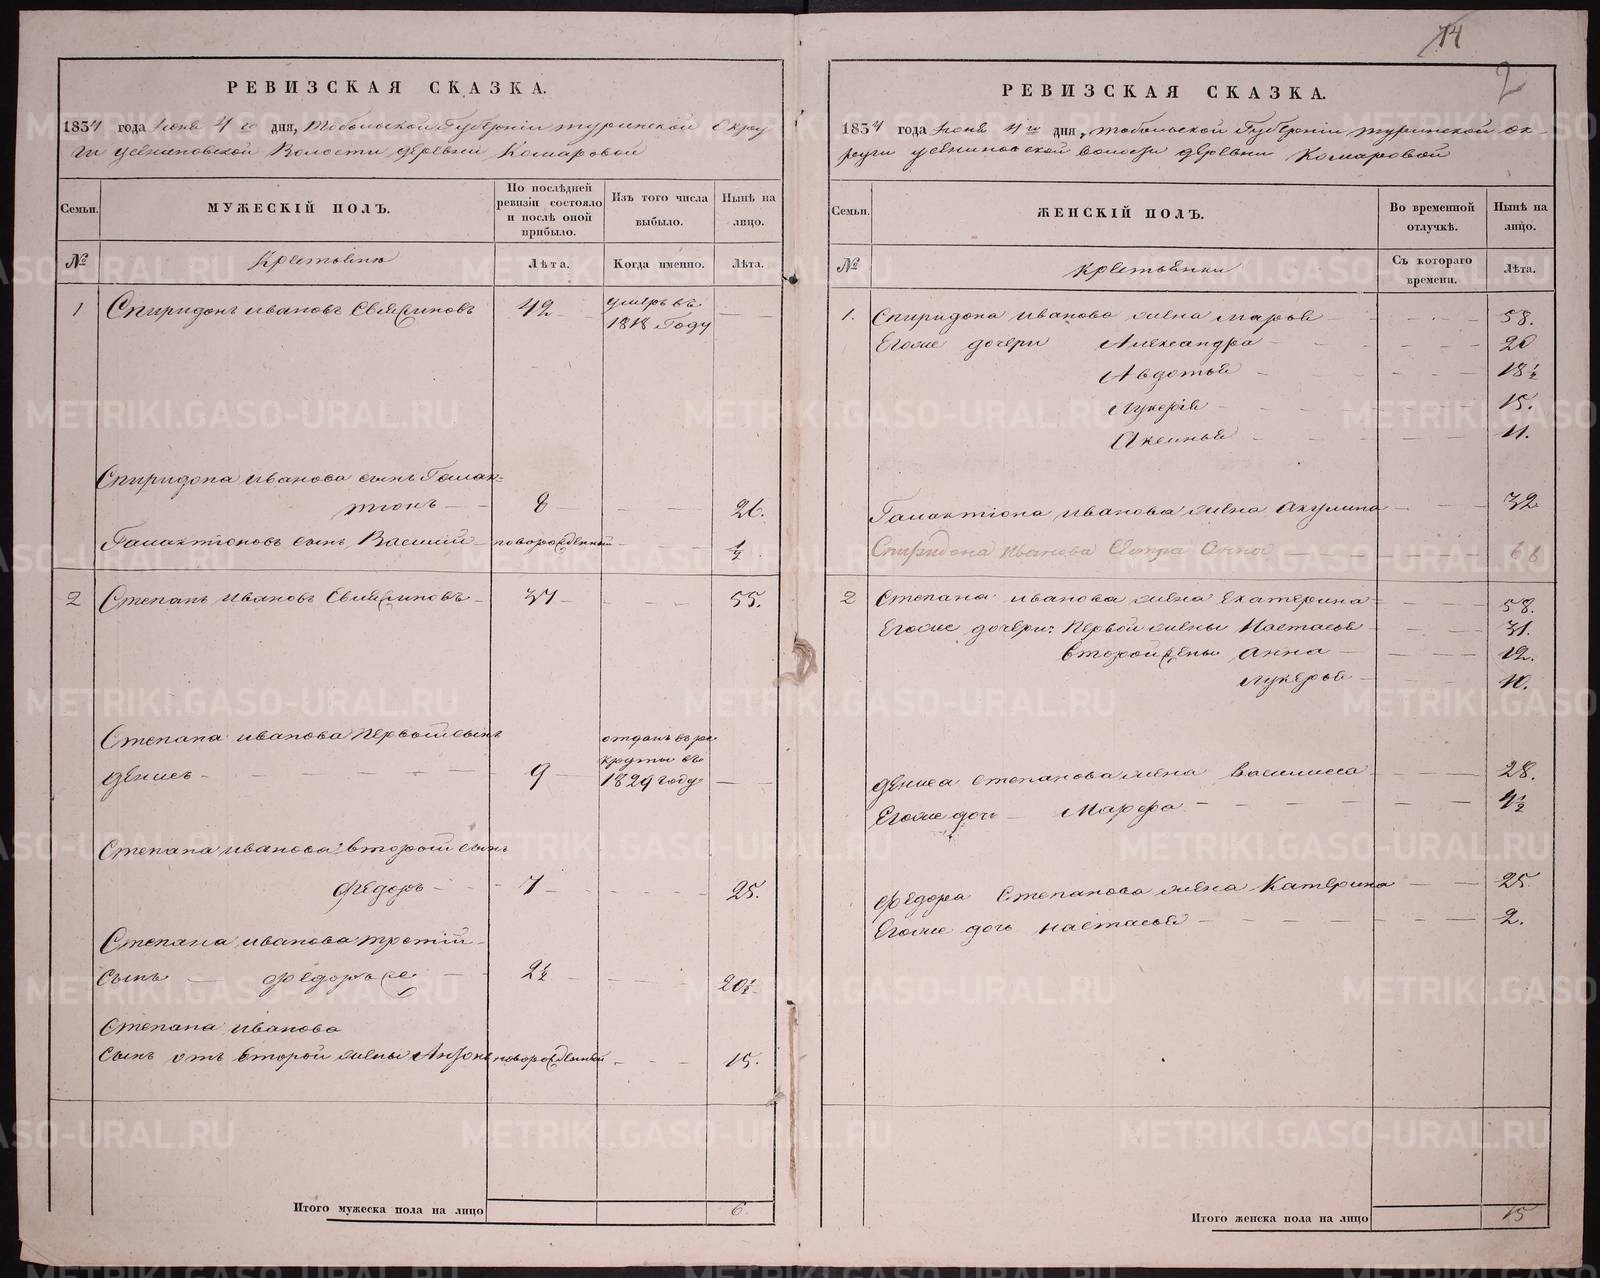 14
2
РЕВИЗСКАЯ СКАЗКА.
1834 года Июня 4го дня, Тобольской Губерніи Туринской Окру
ги Волости деревни Комаровой
Семьи.
МУЖЕСКІЙ ПОЛЪ.
По послѣдней
ревизіи состояло
и послѣ оной
прибыло.
Изъ того числа
выбыло.
Нынѣ на
лицо.
№
Крестьяне
Лѣта.
Когда именно.
Лѣта.
1 Спиридонъ Ивановъ 42 умеръ въ
1818 Году
Спиридона Иванова сынъ Галак-
тіонъ 8 26.
Галактіоновъ сынъ Василий новорожденный ½
2 Степанъ Ивановъ 37 55.
Степана Иванова первой сынъ отданъ въ ре
Денисъ 9 круты въ
1829 году
Степана Иванова второй сынъ
Федоръ 7 25.
Степана Иванова третій
сынъ Федоръ же 2½ 20½
Степана Иванова
сынъ отъ второй жены Антонъ новорожденный 15.
Итого мужеска пола на лицо 6
РЕВИЗСКАЯ СКАЗКА.
1834 года Июня 4го дня, Тобольской Губерніи Туринской Ок-
руги волости деревни Комаровой
Семьи.
ЖЕНСКІЙ ПОЛЪ.
Во временной
отлучкѣ.
Нынѣ на
лицо.
№
Крестьянки
Съ котораго
времени.
Лѣта.
1. Спиридона Иванова жена Марья 58.
Егоже дочери Александра 20
Авдотья 18½
Лукерія 15.
Аксинья 11.
Галактіона Иванова жена Акулина 32
Спиридона Иванова Сестра Анна 66
2 Степана Иванова жена Екатерина 58.
Егоже дочери: первой жены Настасья 31.
второй жены Анна 12.
Лукерья 10.
Дениса Степанова жена Василиса 28.
Егоже дочь Марфа 4½
Федора Степанова жена Катерина 25.
Егоже дочь Настасья 2.
Итого женска пола на лицо 15